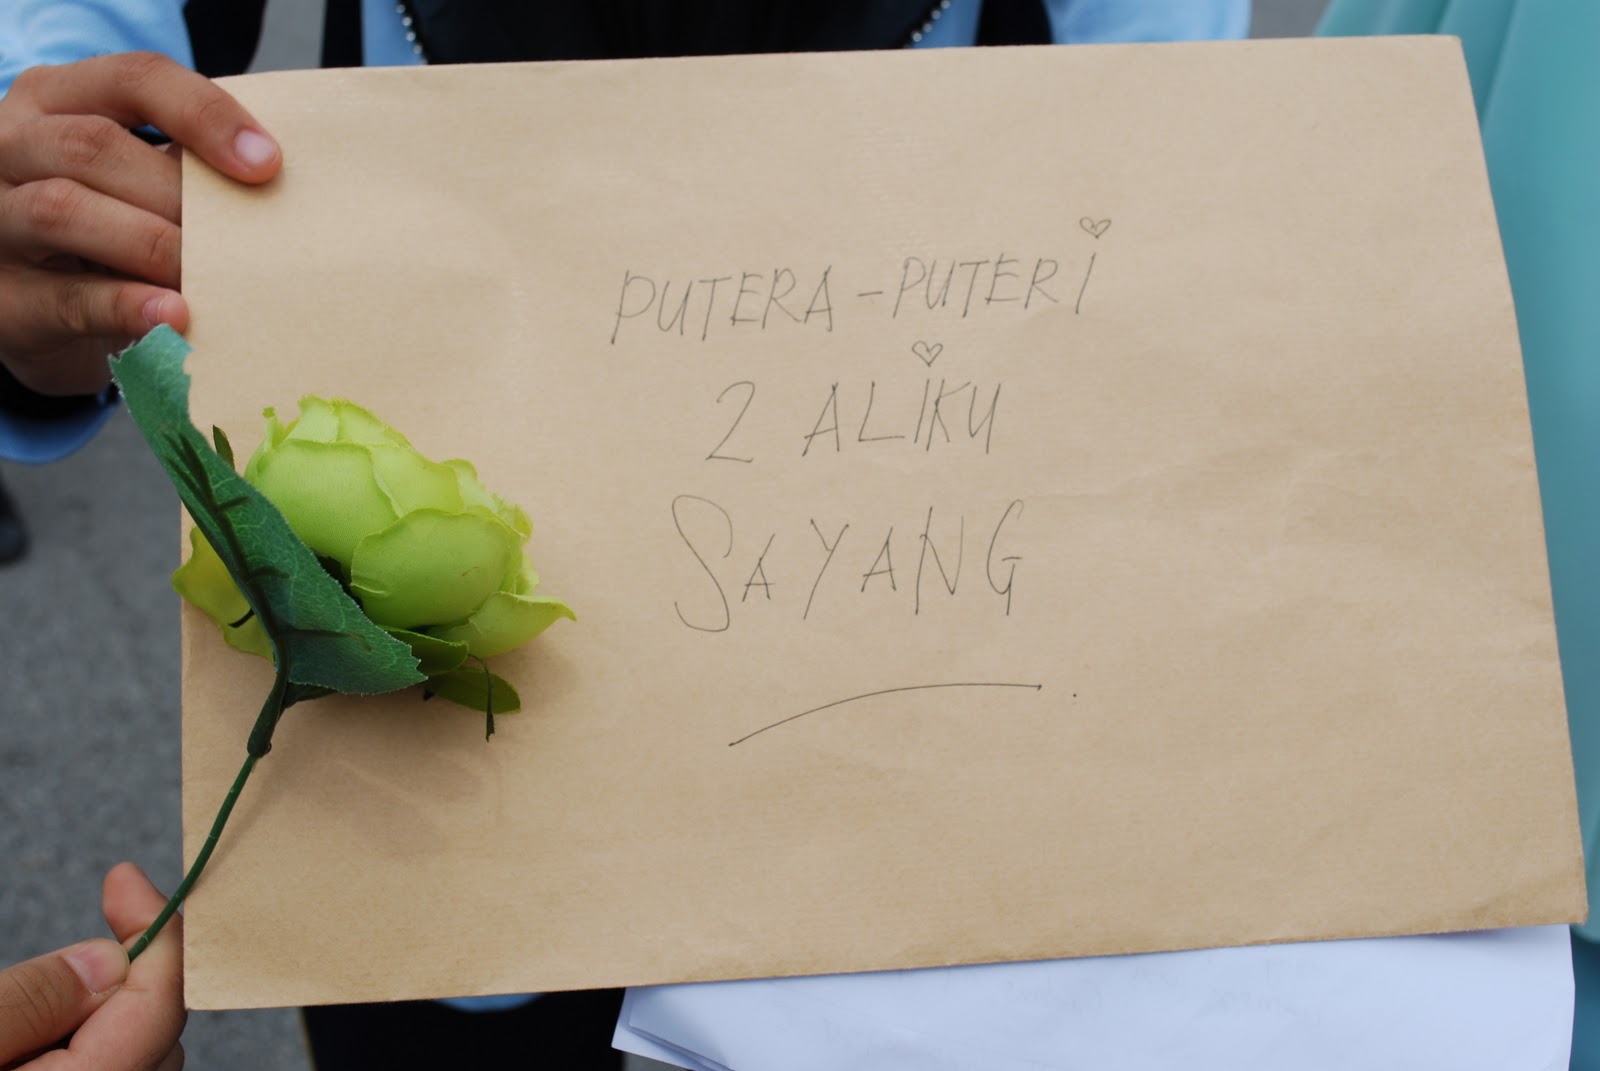 PUTERA - PUTERI
2 ALIKU
SAYANG